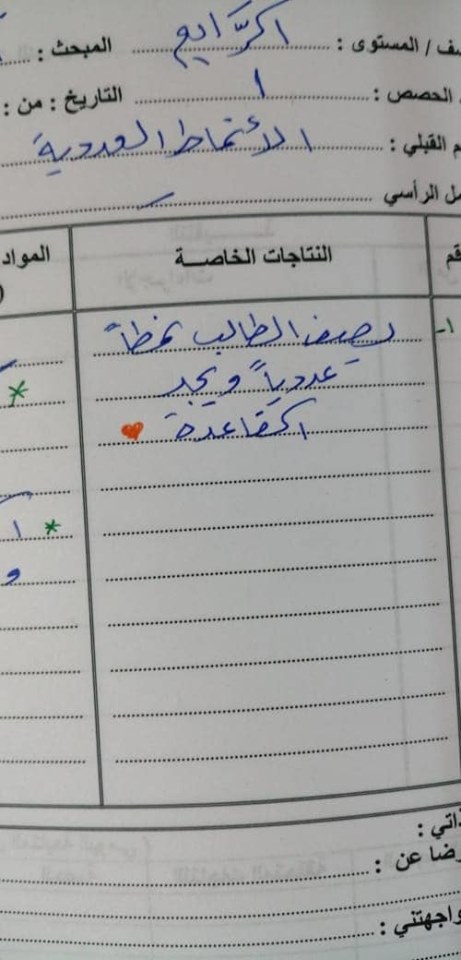 ف / المستوى : الرابع المبحث :
الحصص : ١ التاريخ : من :
القبلي : الأنماط العددية
الرأسي
قم النتاجات الخاصة المواد
١- يصف الطالب نمطاً
* عددياً ويجد
القاعدة
* ا
و
ذاتي :
رضا عن :
واجهتني :